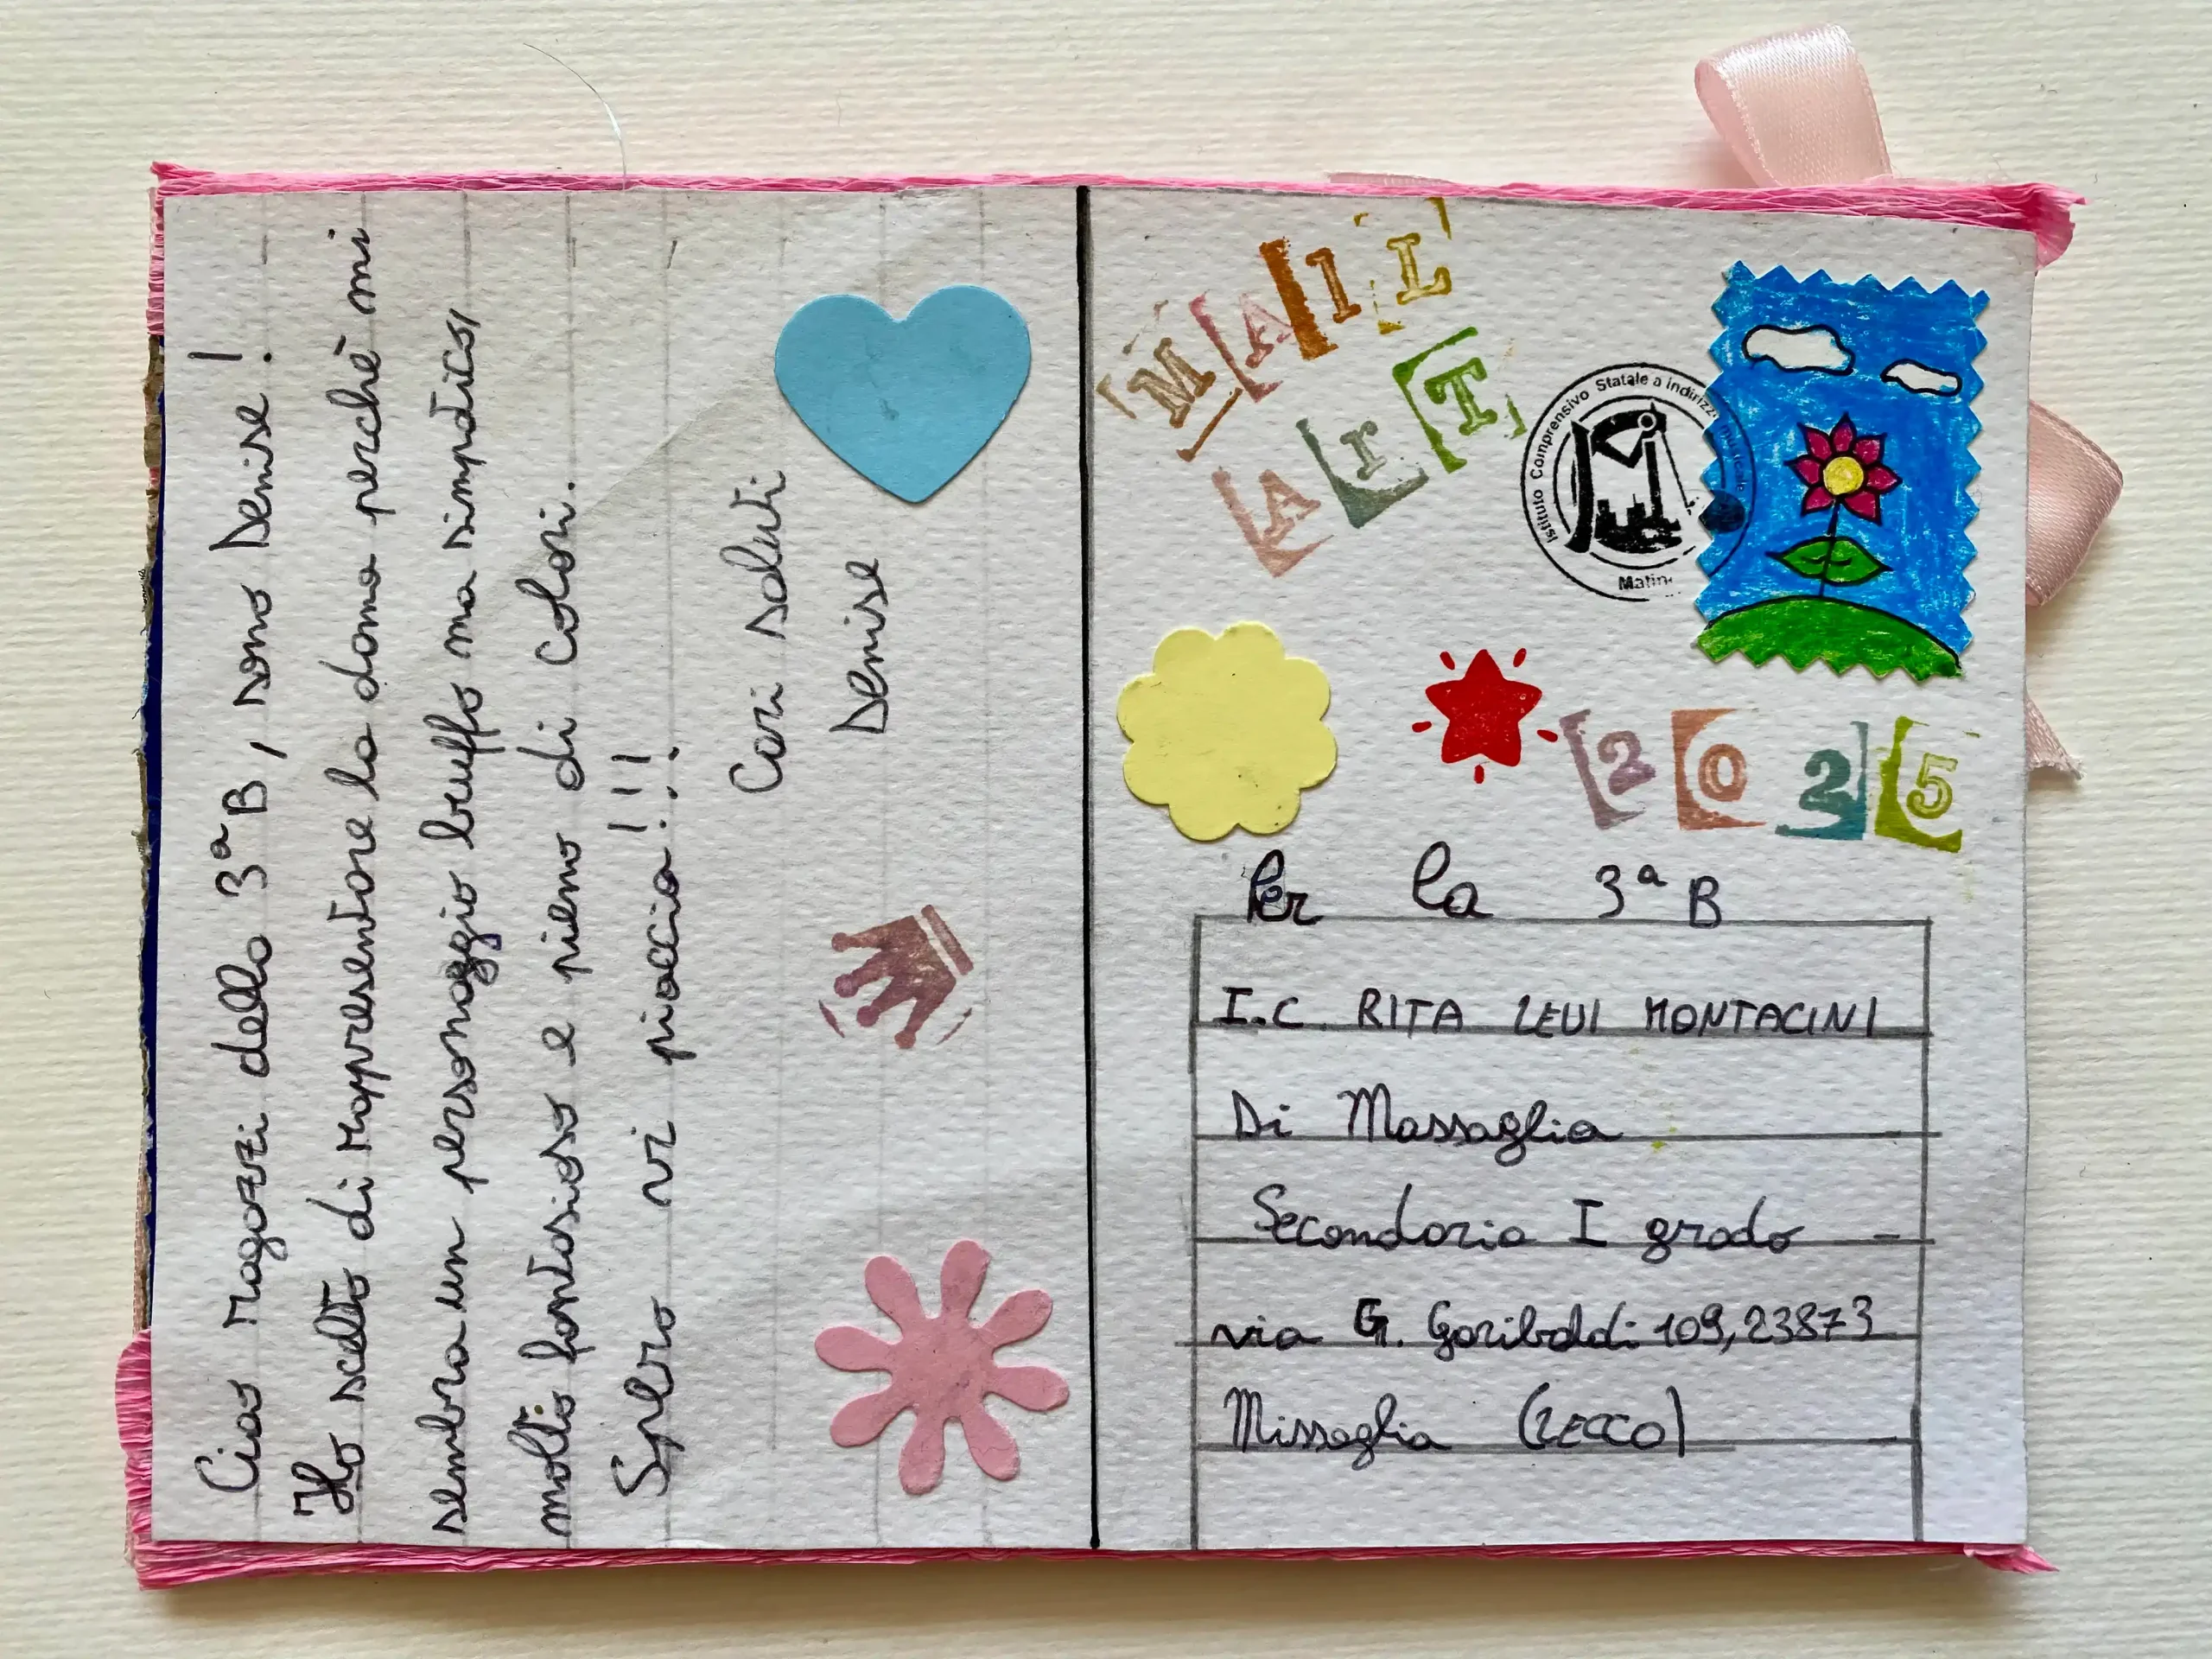 Ciao Ragazzi della 3ª B, sono Denise!
Ho scelto di Rappresentare la dama perchè mi
sembra un personaggio buffo ma simpatico,
molto fantasioso e pieno di colori.
Spero vi piaccia!!!
Cari saluti
Denise
MAIL
ArT
Istituto Comprensivo Statale a Indirizz
Matin
2025
Per la 3ª B
I.C. RITA LEVI MONTACINI
Di Massaglia
Secondaria I grado
via G. Garibaldi 109, 23873
Missaglia (LECCO)